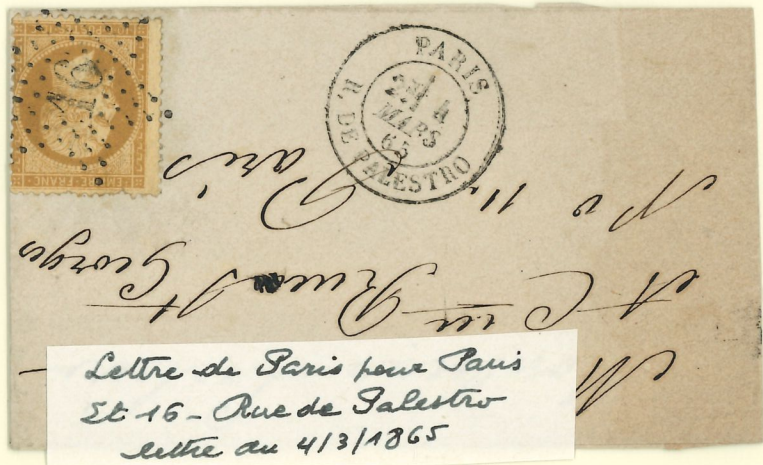 16
EMPIRE FRANC
PARIS
4
MARS
65
R. DE PALESTRO
M
et Cie
Rue St Georges
No 11
Paris
Lettre de Paris pour Paris
Et 16 - Rue de Palestro
lettre du 4/3/1865